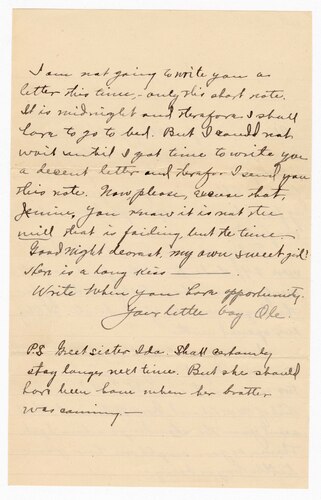 I am not going to write you a
letter this time, - only this short note.
It is midnight and therefore I shall
have to go to bed. But I could not
wait until I got time to write you
a decent letter and therefor I send you
this note. Now please, excuse that,
Jennie, you know it is not the
will that is failing, but the time
Good Night dearest, my own sweet girl!
Here is a long kiss ———.
Write when you have opportunity.
Your little boy Ole.
P.S. Greet sister Ida. Shall certainly
stay longer next time. But she should
have been home when her brother
was coming. —